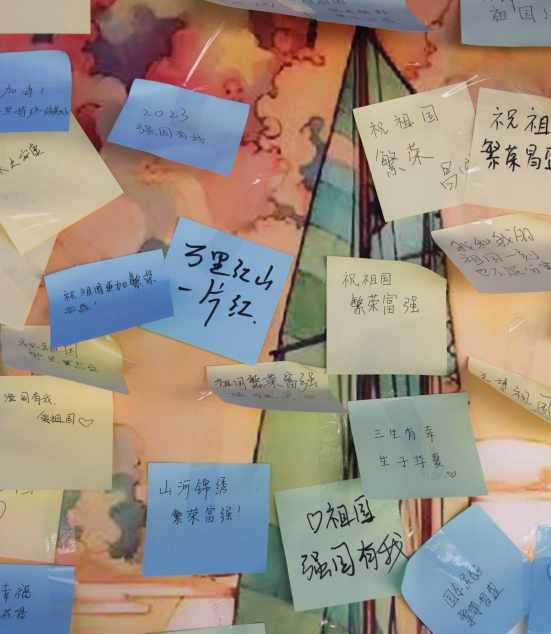 祖国!
加油!
2023
强国有我
祝祖国
繁荣
昌
祝祖
繁荣昌盛
万里江山
一片红.
祝祖国更加繁荣
昌盛!
祝祖国
繁荣富强
我和我的
祖国一刻
也不能分割
祖国繁荣富强
强国有我.
爱祖国♡
三生有幸
生于华夏
♡
山河锦绣
繁荣富强!
♡祖国
强国有我
国泰民安
繁荣昌盛
幸福